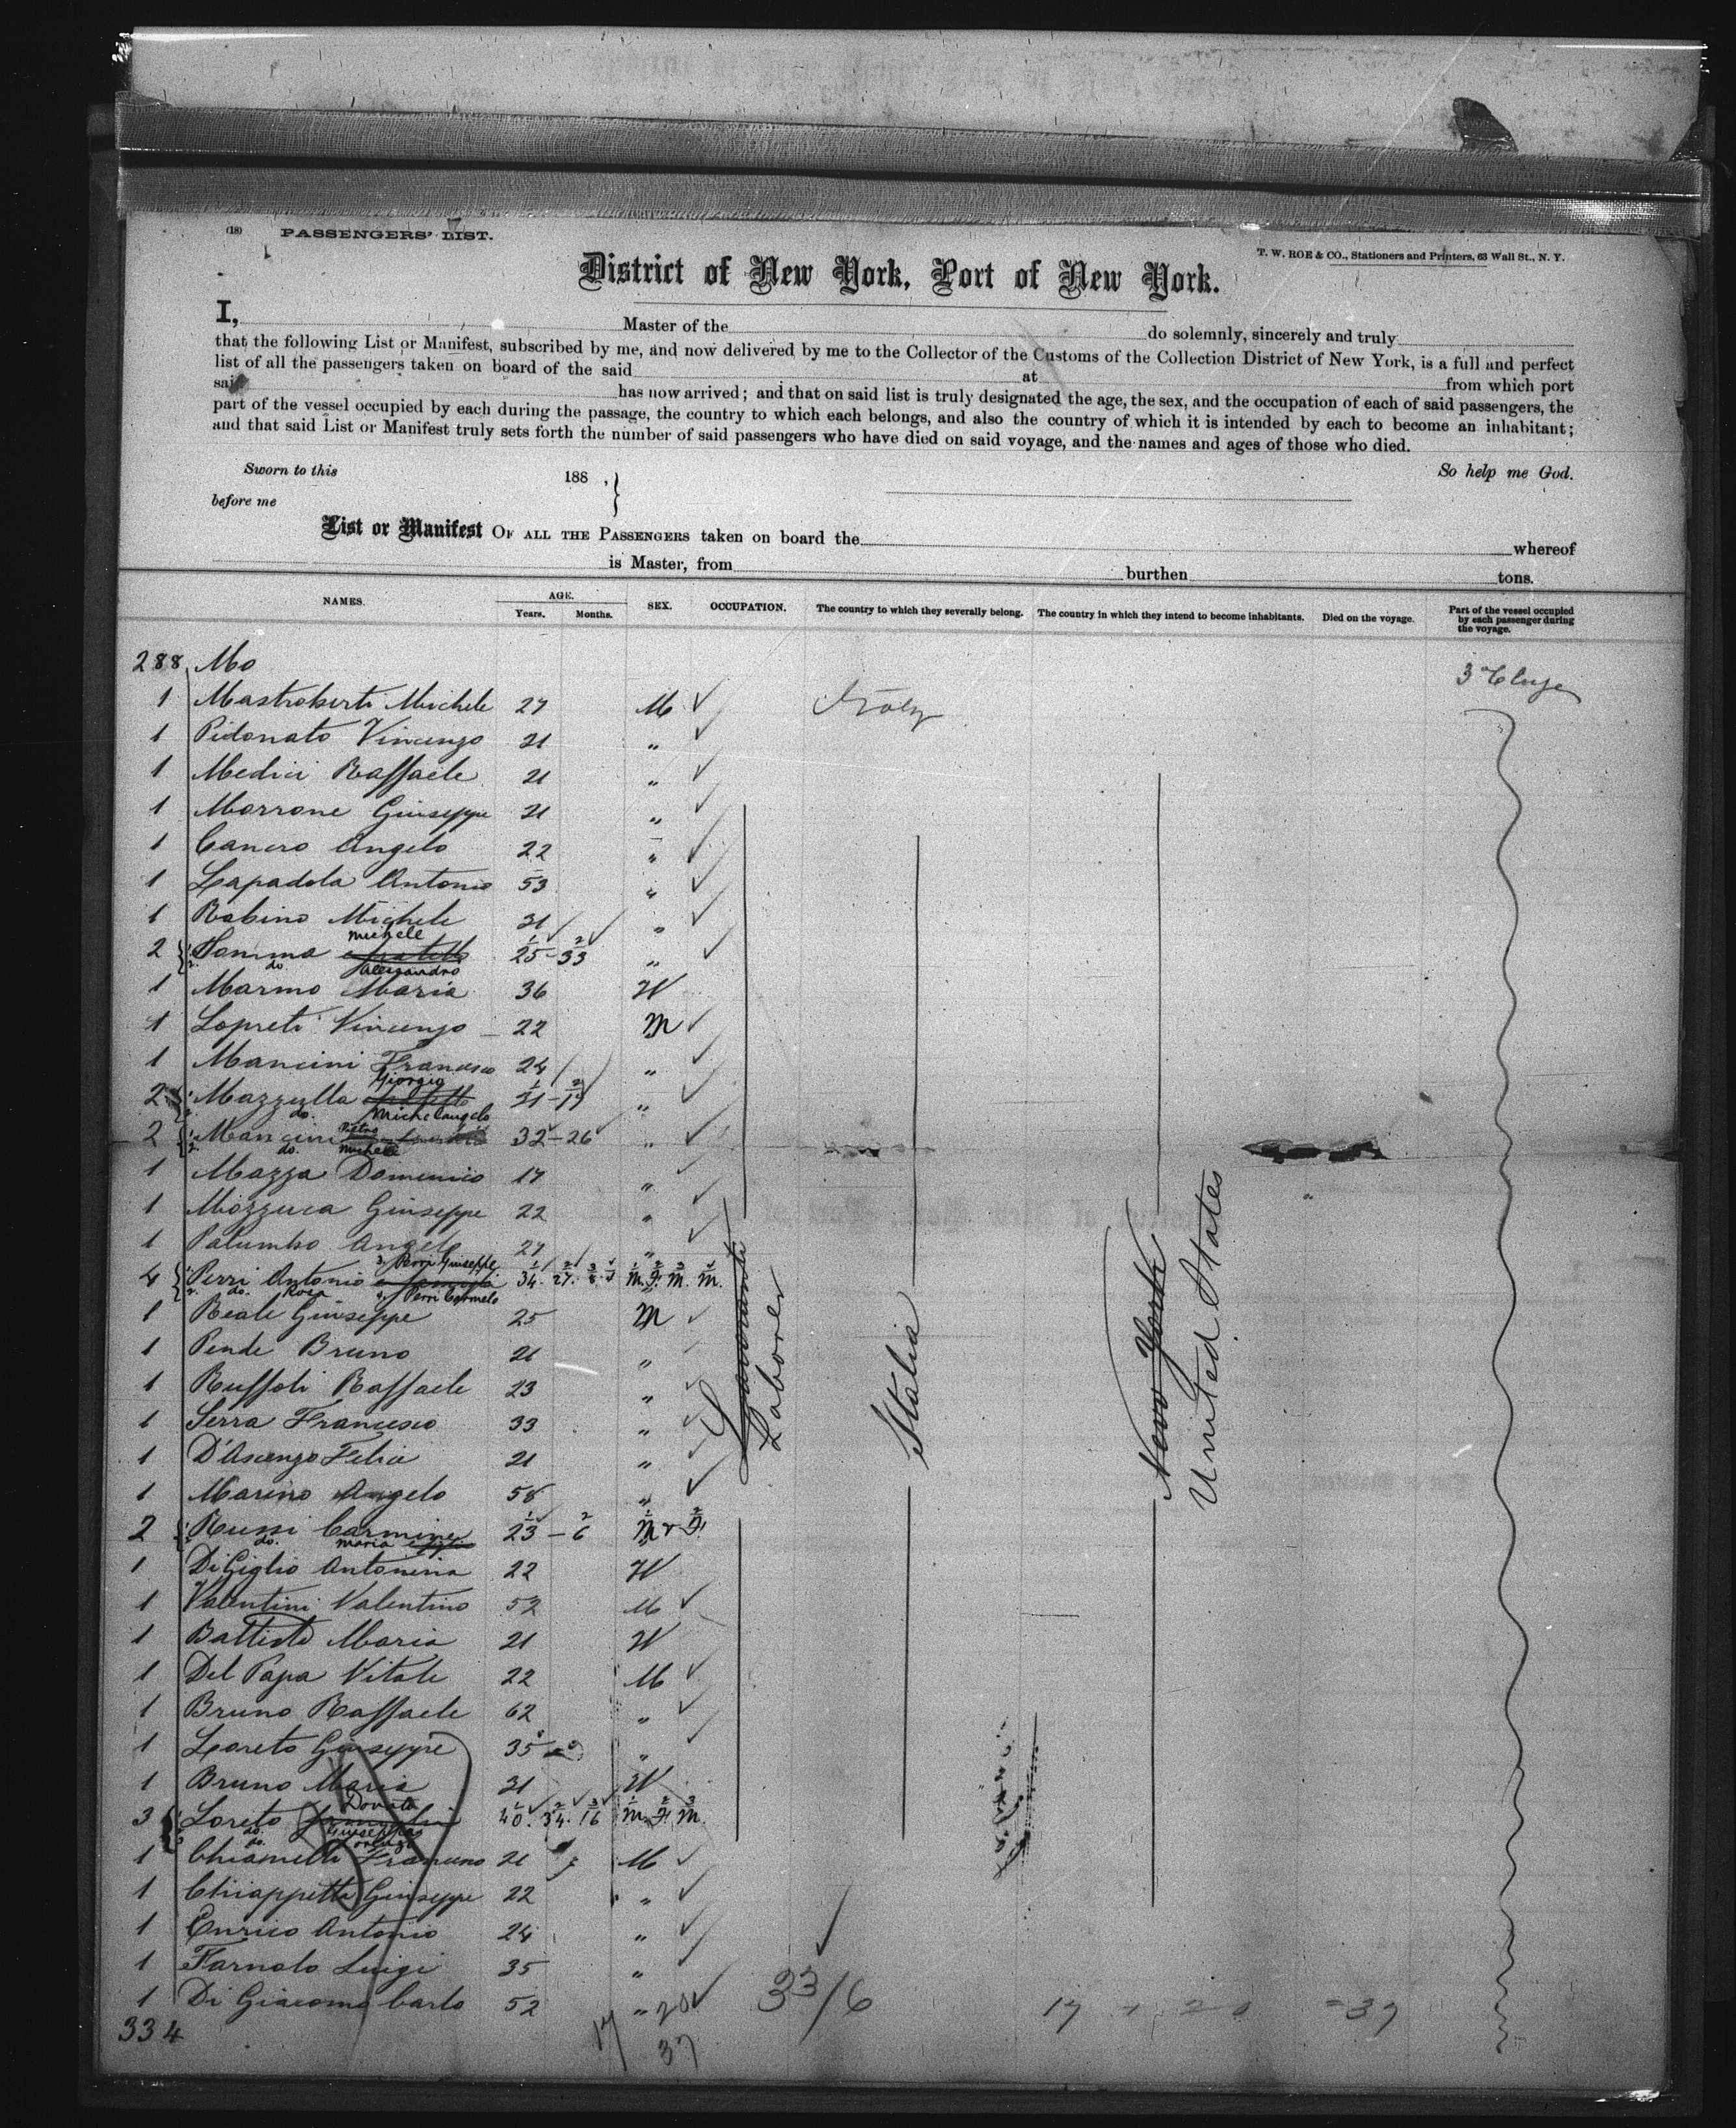 (18) PASSENGERS' LIST.
T. W. ROE & CO., Stationers and Printers, 63 Wall St., N. Y.
District of New York, Port of New York.
I, Master of the do solemnly, sincerely and truly
that the following List or Manifest, subscribed by me, and now delivered by me to the Collector of the Customs of the Collection District of New York, is a full and perfect
list of all the passengers taken on board of the said at from which port
said has now arrived; and that on said list is truly designated the age, the sex, and the occupation of each of said passengers, the
part of the vessel occupied by each during the passage, the country to which each belongs, and also the country of which it is intended by each to become an inhabitant;
and that said List or Manifest truly sets forth the number of said passengers who have died on said voyage, and the names and ages of those who died.
Sworn to this 188 , } So help me God.
before me
List or Manifest OF ALL THE PASSENGERS taken on board the whereof
is Master, from burthen tons.
NAMES. AGE. Years. Months. SEX. OCCUPATION. The country to which they severally belong. The country in which they intend to become inhabitants. Died on the voyage. Part of the vessel occupied by each passenger during the voyage.
288
1 Michele 27 M
1 Pidonato Vincenzo 21 "
1 Medici Raffaele 21 "
1 Morrone Giuseppe 21 "
1 Angelo 22 "
1 Lapadola Antonio 53 "
1 Rabino Michele 31 "
Michele
2 Somma 25-33 "
do Alessandro
1 Marmo Maria 36
1 Lopreti Vincenzo 22 M
1 Mancini Francesco 24 "
Giorgio
2 Mazzulla "
do. Michelangelo
Pietro
2 Mancini 32-26 "
do. Michele
1 Mazza Domenico 17 "
1 Mozzuca Giuseppe 22 "
1 Palumbo Angelo 27 "
3. Perri Giuseppe
4 Perri Antonio 34. 27. M. F. M. M.
2. do. Rosa 4. Perri Carmelo
1 Reale Giuseppe 25 M
1 Pende Bruno 21 "
1 Ruffoli Raffaele 23 "
1 Serra Francesco 33 "
1 D'Ascenzo Felice 21 "
1 Marino Angelo 58 "
2 Russi Carmine 23 - 6 M F
do. Maria
1 DiGiglio Antonina 22
1 Valentini Valentino 52 M
1 Battisto Maria 21
1 Del Papa Vitale 22 M
1 Bruno Raffaele 62 "
1 Loreto Giuseppe 35 "
1 Bruno Maria 31
Donato
3 Loreto 40. 34. 16 M. F. M.
do. Giuseppa
do.
1 21 M
1 Chiappetta Giuseppe 22 "
1 Enrico Antonio 24 "
1 Farnolo Luigi 35 "
1 Di Giacomo Carlo 52 "
334
Laborer
Italia
New York
United States
20
33/6
17 + 20 = 37
17
37